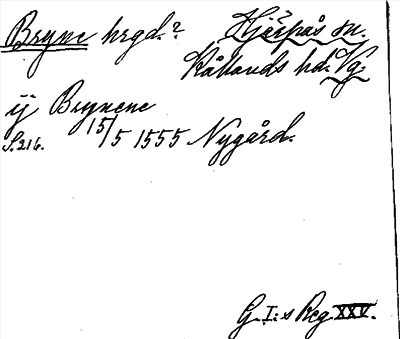 Bryne hrgd.? Hjärpås sn.
Kållands hd. Vg.
ij Brynene
S. 216. 15/5 1555 Nygård.
G. I:s Reg XXV.